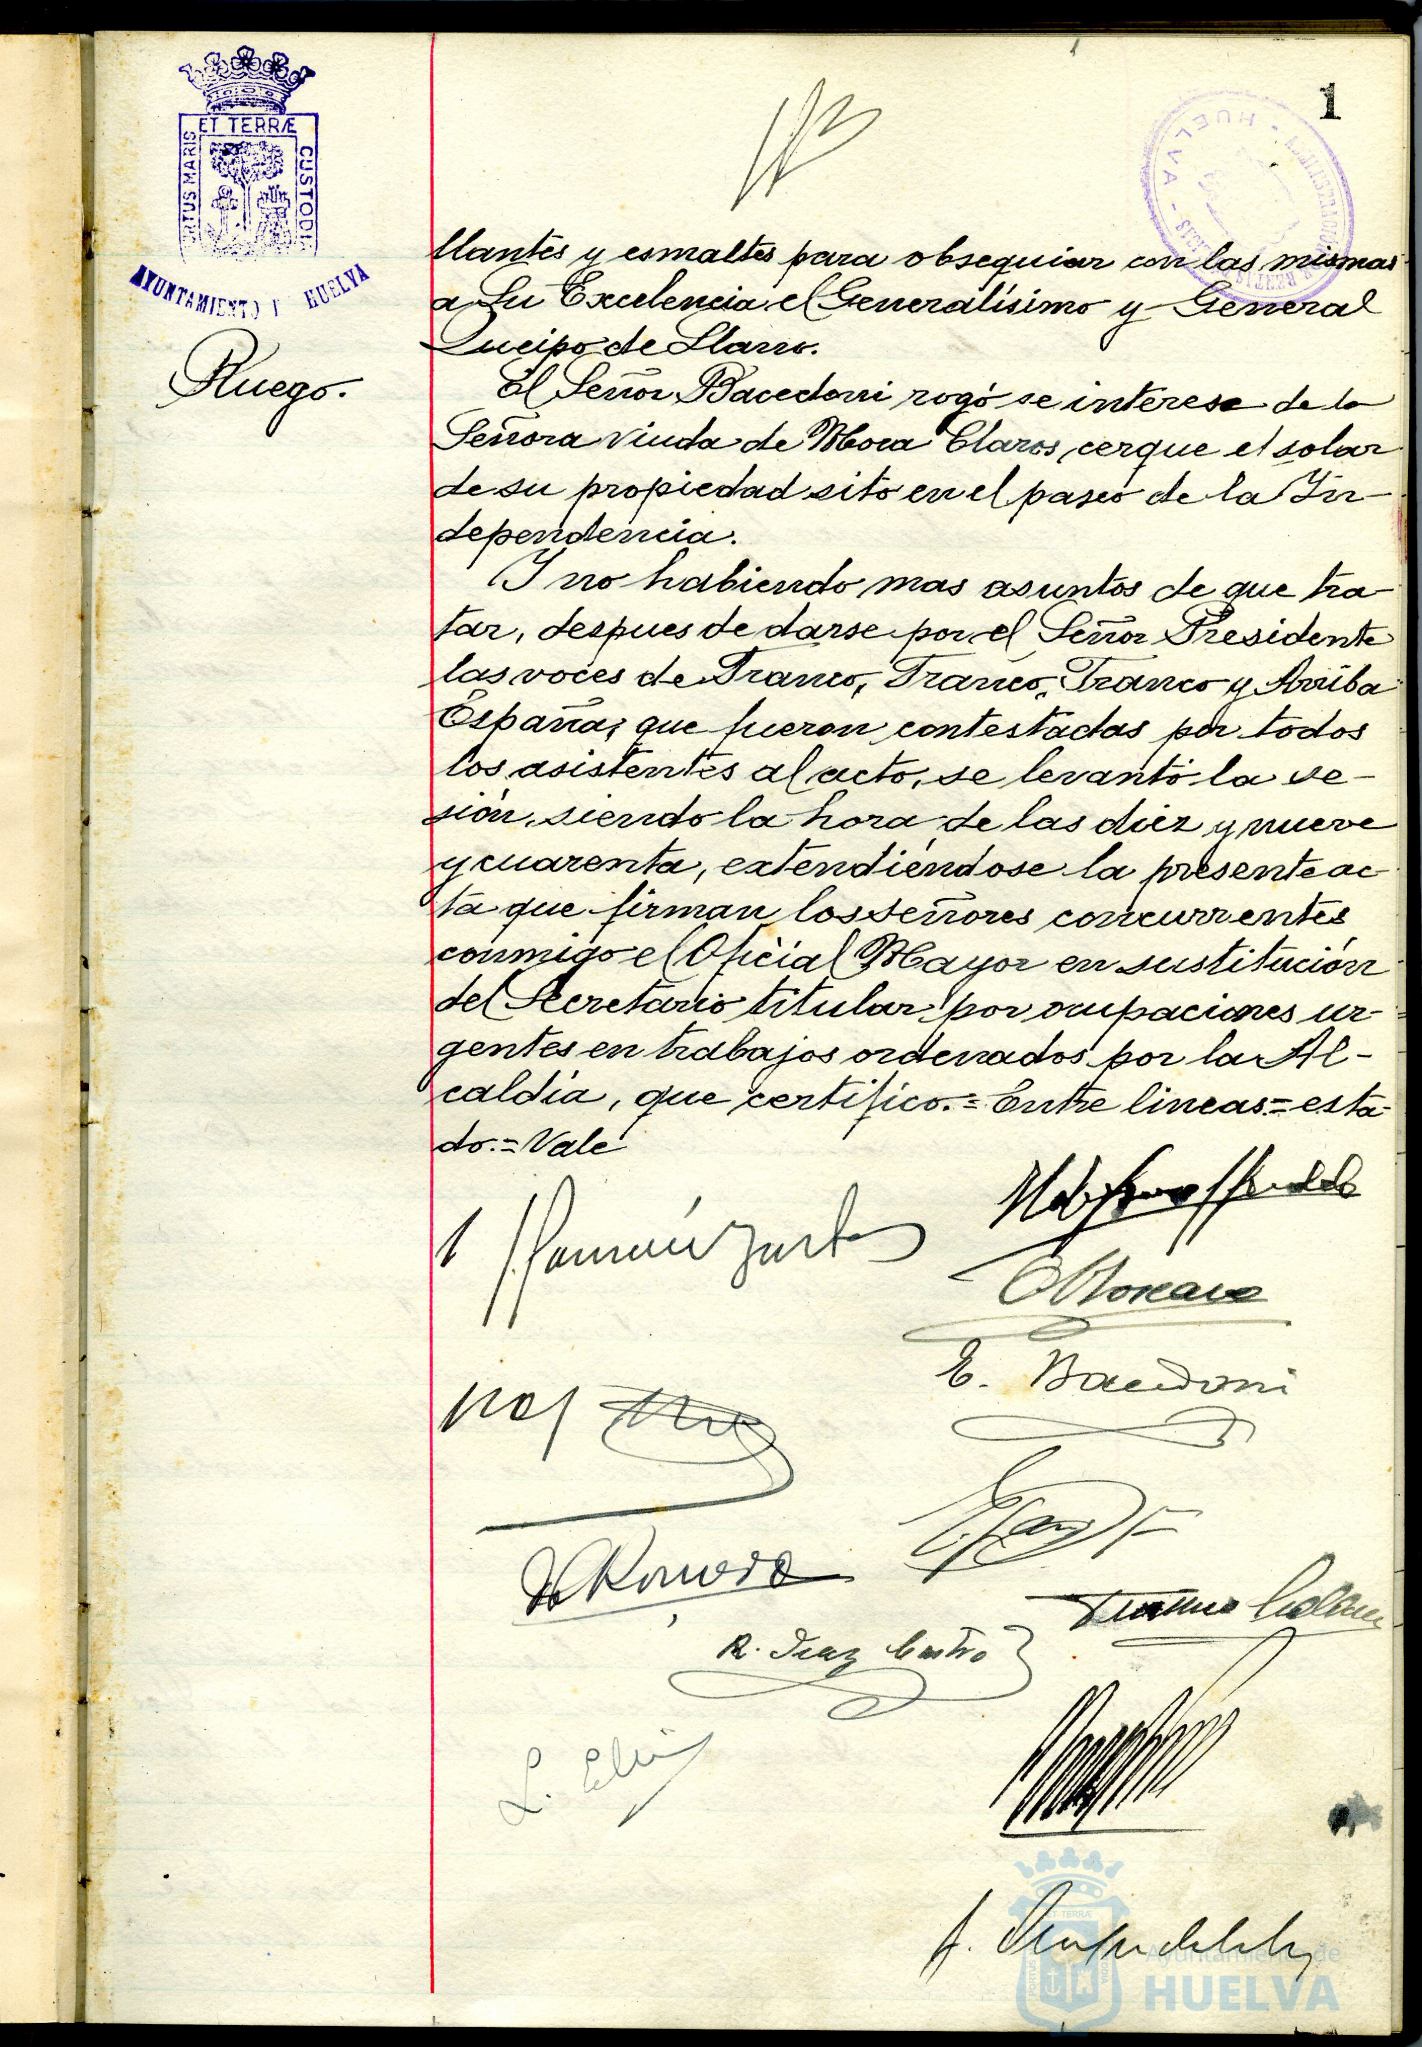 1
ET TERRÆ
PORTUS MARIS
CUSTODI
AYUNTAMIENTO HUELVA
HUELVA
Ruego.
llantes y esmaltes para obsequiar con las mismas
a Su Excelencia el Generalísimo y General
Queipo de Llano.
El Señor Bacedoni rogó se interese de la
Señora viuda de Mora Claros, cerque el solar
de su propiedad sito en el paseo de la In-
dependencia.
Y no habiendo mas asuntos de que tra-
tar, despues de darse por el Señor Presidente
las voces de Franco, Franco, Franco y Arriba
España, que fueron contestadas por todos
los asistentes al acto, se levantó la se-
sión, siendo la hora de las diez y nueve
y cuarenta, extendiéndose la presente ac-
ta que firman los señores concurrentes
conmigo el Oficial Mayor en sustitución
del Secretario titular por ocupaciones ur-
gentes en trabajos ordenados por la Al-
caldía, que certifico.=Entre lineas=esta-
do.=Vale
E. Bacedoni
Romero
R. Diaz Castro
Ayuntamiento de
HUELVA